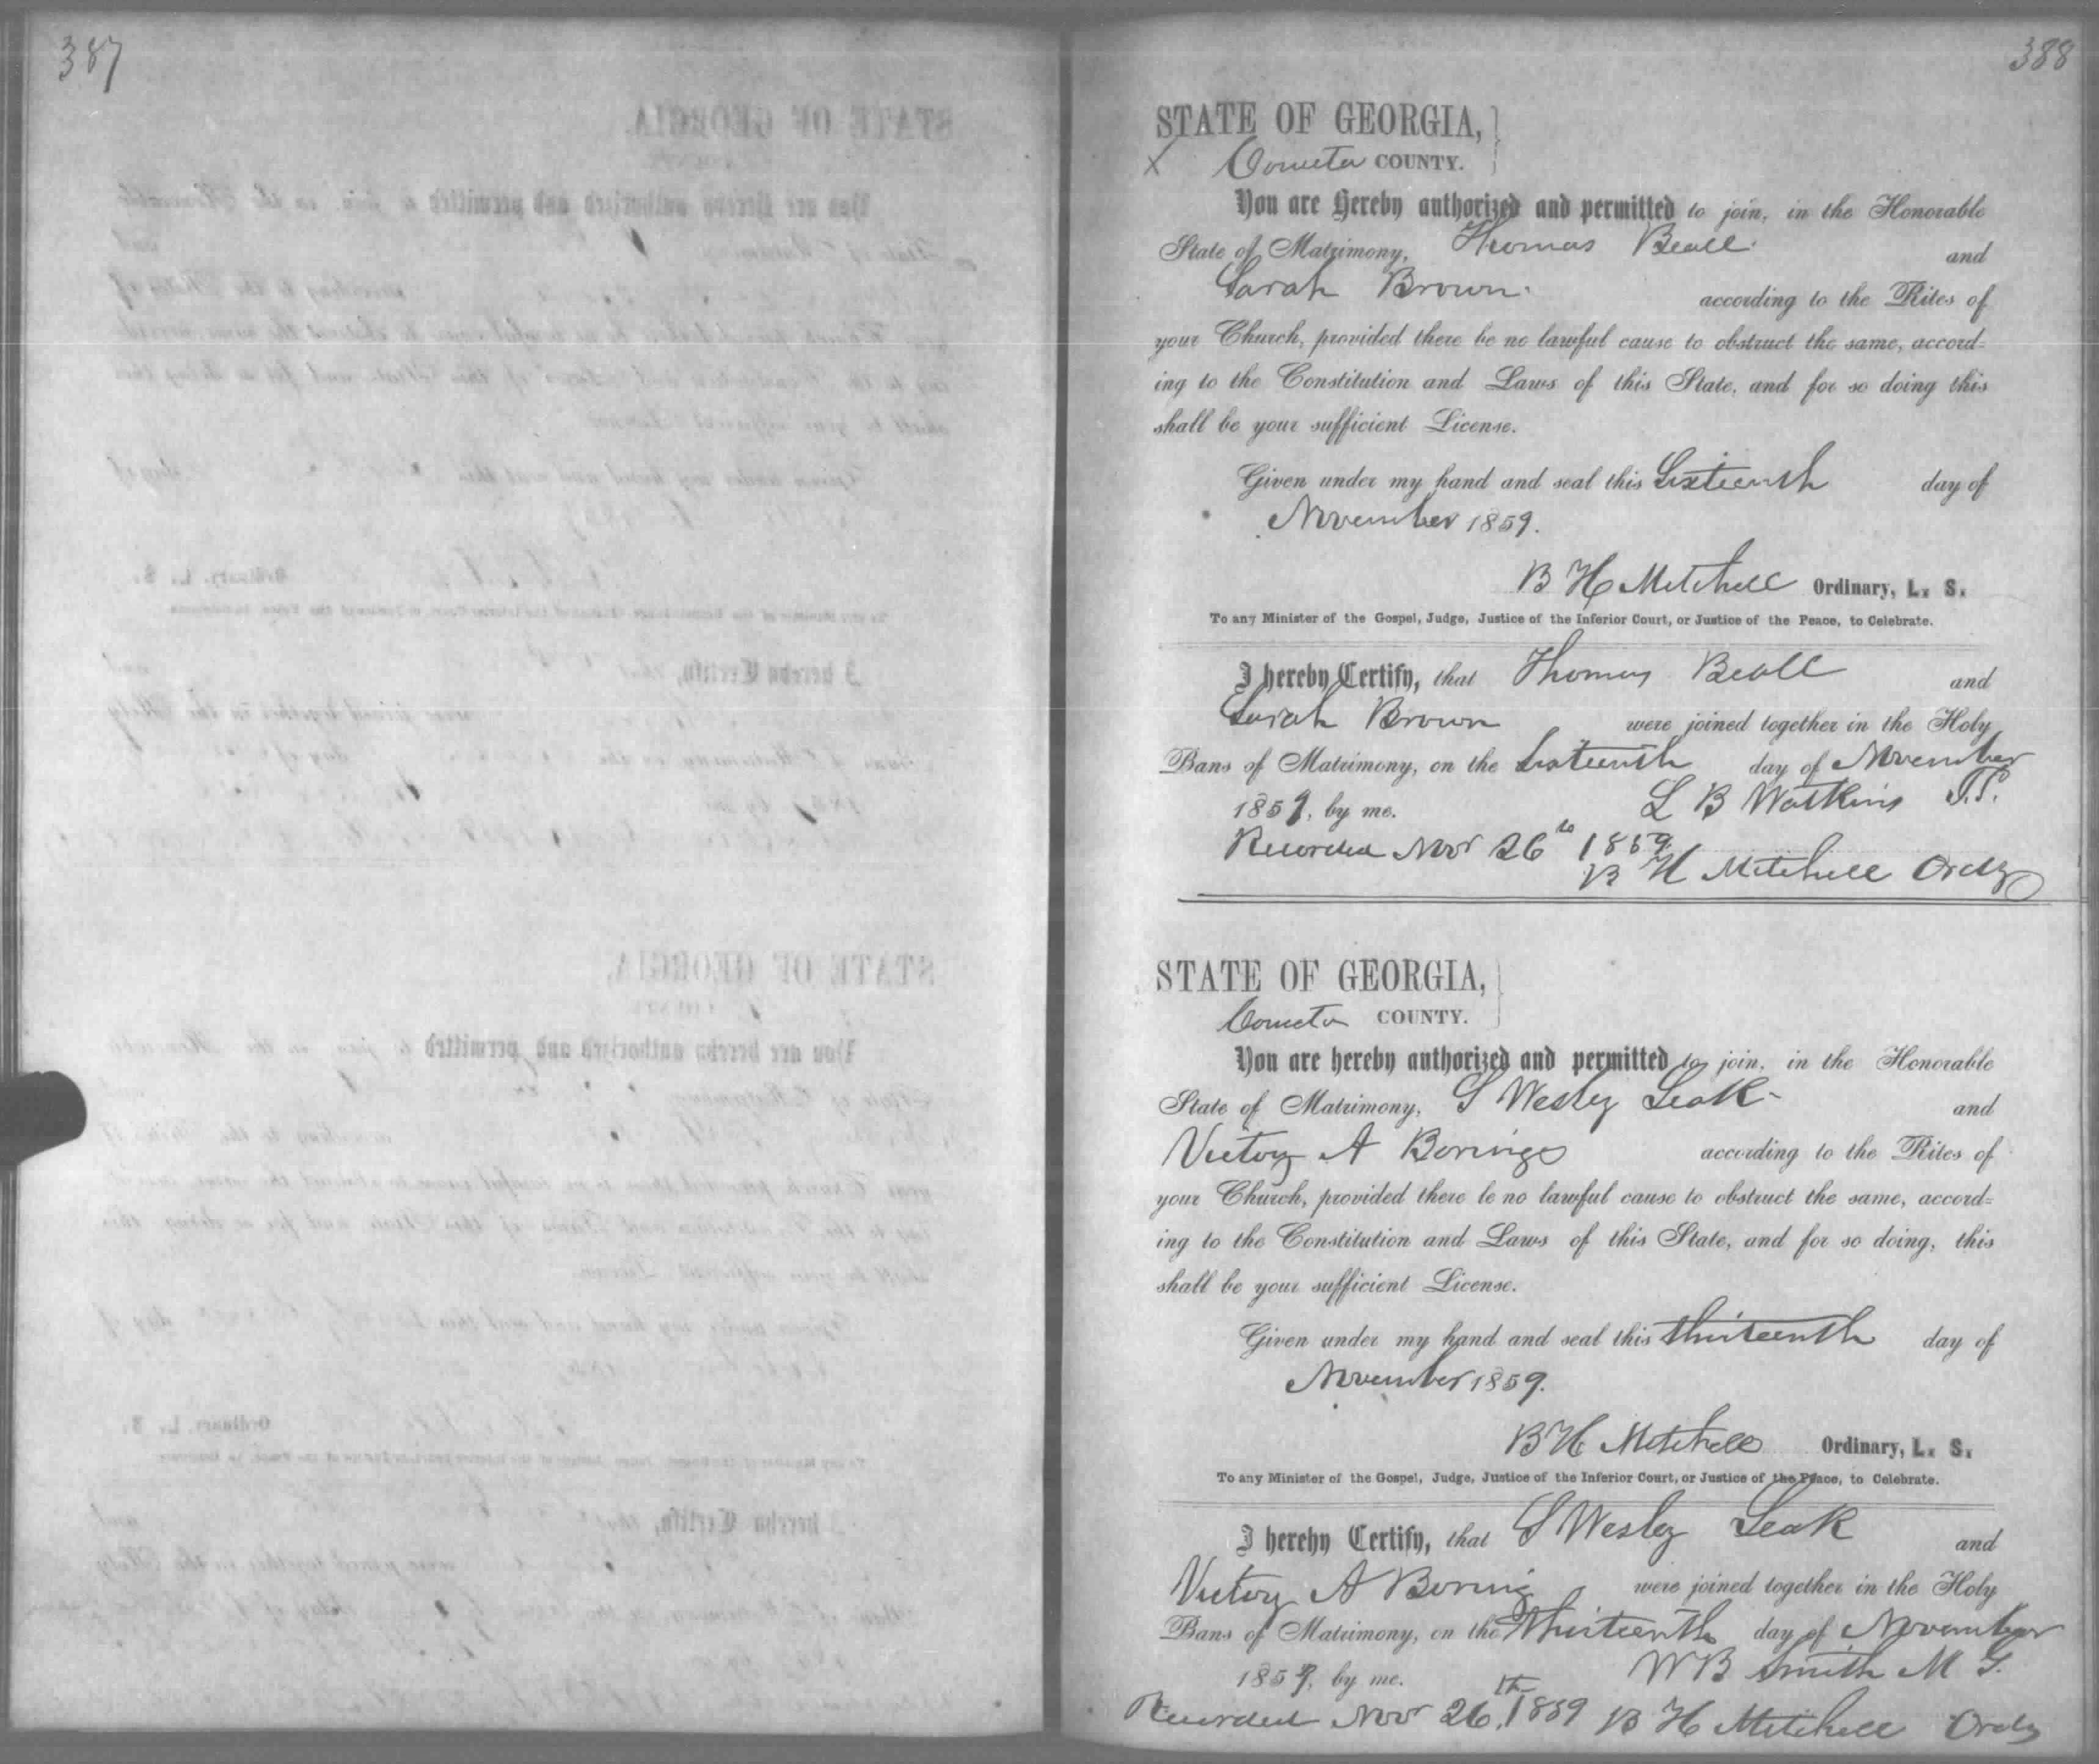 387
388
STATE OF GEORGIA,
X Coweta COUNTY.
You are Hereby authorized and permitted to join, in the Honorable
State of Matrimony, Thomas Beall and
Sarah Brown according to the Rites of
your Church, provided there be no lawful cause to obstruct the same, accord-
ing to the Constitution and Laws of this State, and for so doing this
shall be your sufficient License.
Given under my hand and seal this Sixteenth day of
November 1859.
B H Mitchell Ordinary, L. S.
To any Minister of the Gospel, Judge, Justice of the Inferior Court, or Justice of the Peace, to Celebrate.
I hereby Certify, that Thomas Beall and
Sarah Brown were joined together in the Holy
Bans of Matrimony, on the Sixteenth day of November
1859, by me. L B Watkins J.P.
Recorded Nov 26th 1859
B H Mitchell Ordy
STATE OF GEORGIA,
Coweta COUNTY.
You are hereby authorized and permitted to join, in the Honorable
State of Matrimony, S Wesley Leak and
Victory A Borings according to the Rites of
your Church, provided there be no lawful cause to obstruct the same, accord-
ing to the Constitution and Laws of this State, and for so doing, this
shall be your sufficient License.
Given under my hand and seal this thirteenth day of
November 1859.
B H Mitchell Ordinary, L. S.
To any Minister of the Gospel, Judge, Justice of the Inferior Court, or Justice of the Peace, to Celebrate.
I hereby Certify, that S Wesley Leak and
Victory A Boring were joined together in the Holy
Bans of Matrimony, on the Thirteenth day of November
1859, by me. W B Smith M G.
Recorded Nov 26th 1859 B H Mitchell Ordy